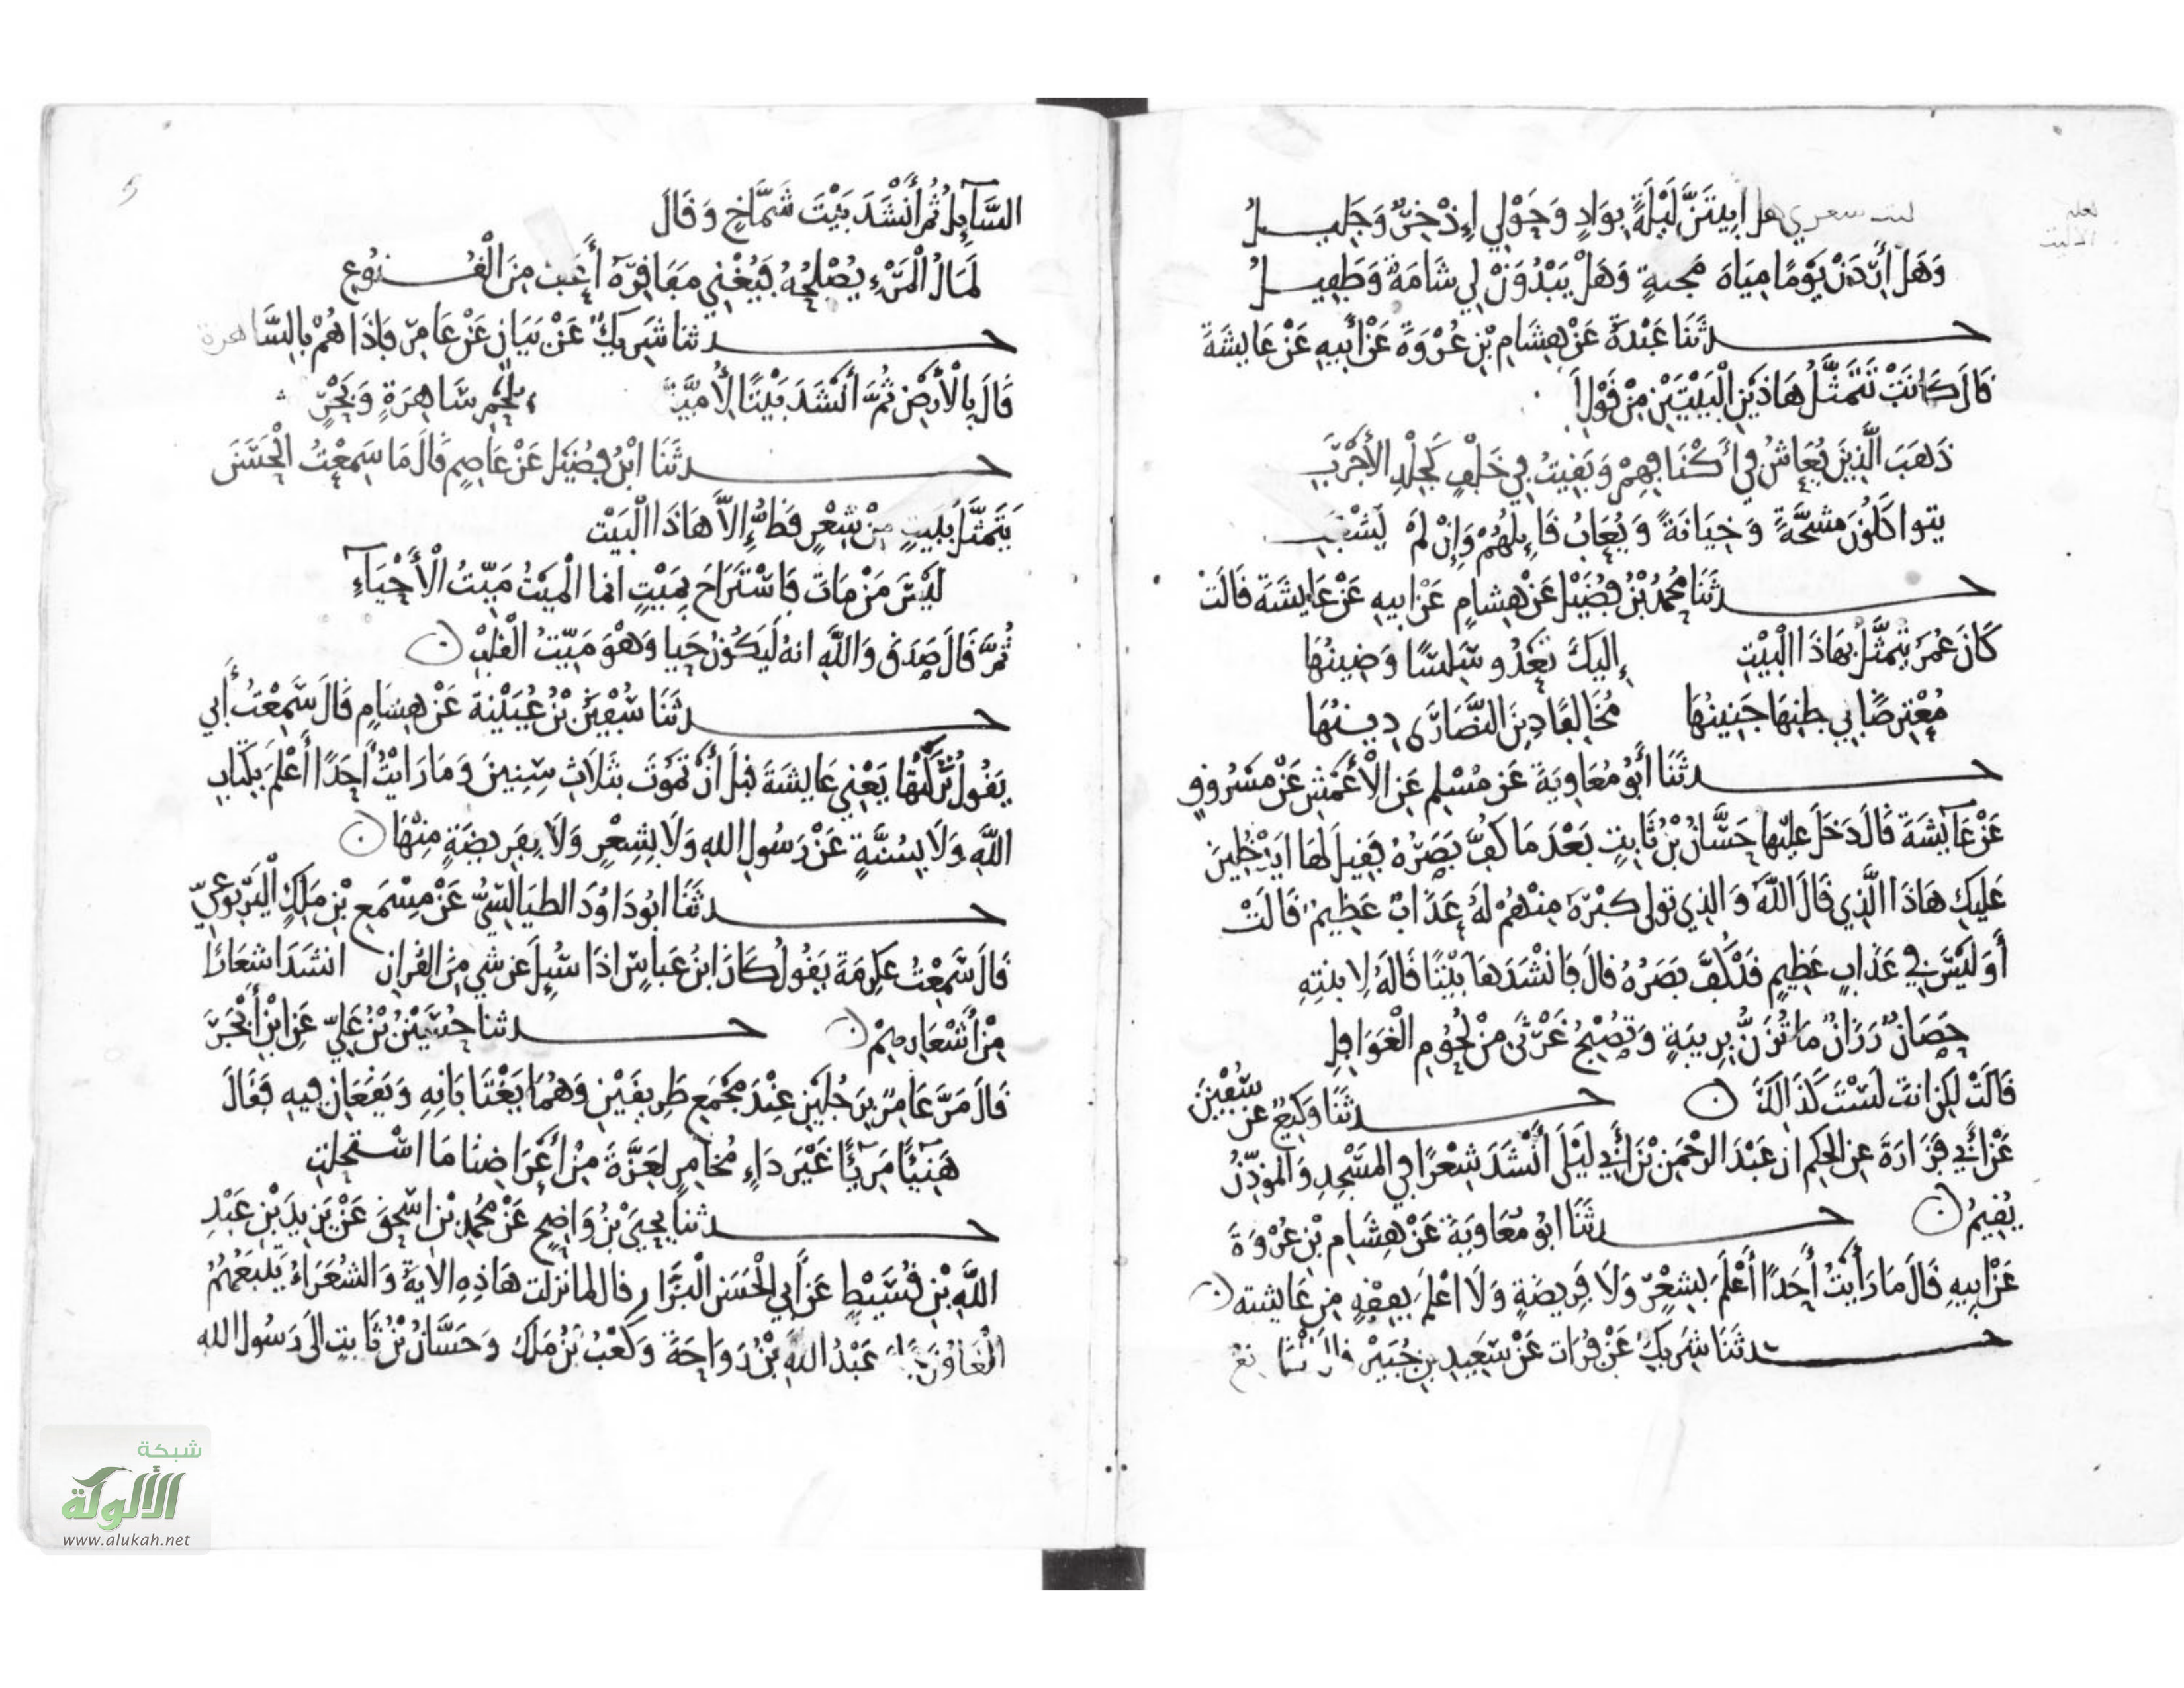 ليت شعري هل ابيتَنَّ لَيْلَةً بِوَادٍ وَحَوْلِي إِذْخِرٌ وَجَلِيلُ
وَهَل أَرِدَنْ يَوْمًا مِيَاهَ مَجنةٍ وَهَلْ يَبْدُوَنْ لِي شَامَةٌ وَطَفِيلُ
حدثَنَا عَبْدَةُ عَنْ هِشَامِ بْنِ عُرْوَةَ عَنْ أَبِيهِ عَنْ عَايِشَةَ
قَالَ كَانَتْ تَتَمَثَّلُ هَاذَيْنِ الْبَيْتَيْنِ مِنْ قَوْلِ
ذَهَبَ الَّذِينَ يُعَاشُ فِي أَكْنَافِهِمْ وَبَقِيتُ فِي خَلْفٍ كَجِلْدِ الأَجْرَبِ
يتواكَلُونَ مشحَّةً وَخِيَانَةً وَيُعَابُ قَايِلهُمْ وَإِنْ لَمْ يَشْغَبِ
حدثَنَا مُحمدُ بْنُ فُضَيْلٍ عَنْ هِشامٍ عَنْ ابيهِ عَنْ عَايشَةَ قَالَتْ
كَانَ عُمَرُ يتَمثَّلُ بهَاذَا الْبَيْتِ إِليكَ تَعْدُو سَلِسًا وَضِينُهَا
مُعْتَرِضًا فِي بطنِهَا جَنِينُهَا مُخَالِفًا دِينَ النَّصَارَى دِينُهَا
حدثَنَا أَبُو مُعَاوِيَةَ عَن مُسْلِمٍ عَنِ الْأَعْمَشِ عَنْ مَسْرُوقٍ
عَنْ عَايِشَةَ قَالَ دَخَلَ عليْها حَسَّانُ بْنُ ثَابِتٍ بَعْدَ مَا كُفَّ بَصَرُهُ فَقِيلَ لَهَا ايدْخُلِينَ
عَلَيكِ هَاذَا الَّذِي قَالَ اللَّهُ وَالذِي تولى كبْرَهُ مِنْهُمْ لَهُ عَذَابٌ عَظِيمٌ قَالَتْ
أَوَ لَيْسَ فِي عَذَابٍ عَظِيمٍ قَدْ كُفَّ بَصَرُهُ قالَ فَانْشَدَهَا بَيْتًا قَالَهُ لِابنتِهِ
حَصَانٌ رَزَانٌ مَا تُزَنُّ بِرِيبَةٍ وَتُصْبِحُ غَرْثَى مِنْ لُحُومِ الْغَوَافِلِ
قَالَتْ لَكِن انتَ لَسْتَ كَذَالِكَ ن حدثَنَا وَكِيعٌ عن سُفْيَنَ
عَنْ أَبِي فَزَارَةَ عنِ الحكمِ ان عَبْدَ الرحْمَنِ بْنَ أَبِي لَيْلَى أَنْشَدَ شِعْرًا فِي المَسْجِدِ وَالْمُوَذِّنُ
يُقِيمُ ن حدثَنَا ابُو مُعَاوِيَةَ عَنْ هِشَامِ بْنِ عُرْوَةَ
عَنْ ابيهِ قَالَ مَا رَأَيْتُ أَحَدًا أَعْلَمَ بِشِعْرٍ وَلَا فَرِيضَةٍ وَلَا اعْلَمَ بِفِقْهٍ مِن عَايشته ن
حدثَنَا شَرِيكٌ عَنْ فُرَات عَنْ سَعِيدِ بنِ جُبَيْرٍ قال
السَّآيِلُ ثُمَّ أَنْشَدَ بَيْتَ شَمَّاخٍ وَقَالَ
لَمَالُ الْمَرْءِ يُصْلِحُهُ فَيُغْنِي مَفَاقِرَهُ أَعَفُّ مِنَ الْقُنُوعِ
حدثنا شَرِيكٌ عَنْ بَيَانٍ عَنْ عَامِرٍ فَإِذَا هُمْ بِالسَّاهرة
قَالَ بِالْأَرْضِ ثُمَّ أَنْشَدَ بَيْتًا لِأُمَيَّةَ بلَحْمِ سَاهِرَةٍ وَبَحْرٍ
حدثَنَا ابْنُ فُضَيْلٍ عَنْ عَاصِمٍ قَالَ مَا سَمِعْتُ الْحَسَنَ
يَتَمَثَّلُ بِبَيتٍ مِنْ شِعْرٍ قَطُّ إِلَّا هَاذَا الْبَيْت
لَيْسَ مَنْ مَاتَ فَاسْتَرَاحَ بِمَيْتٍ انما الْمَيْتُ مَيِّتُ الْأَحْيَآءِ
ثُمَّ قَالَ صَدَقَ وَاللَّهِ انهُ لَيَكُونُ حَيا وَهْوَ مَيِّتُ الْقَلْبِ ن
حدثَنَا سُفْيَنُ بْنُ عُيَيْنَةَ عَنْ هِشَامٍ قَالَ سَمِعْتُ أَبِي
يَقُولُ تَرَكْتُهَا يَعْنِي عَايشَةَ قبلَ أَنْ تَمُوتَ بثَلَاثِ سِنِينَ وَمَا رَايْتُ أَحَدًا أَعْلَمَ بِكِتَابِ
اللَّهِ وَلَا بِسُنَّةٍ عَنْ رَسُولِ اللهِ وَلَا بِشِعْرٍ وَلَا بِفَرِيضَةٍ مِنْهَا ن
حدثَنَا ابُو دَاوُدَ الطيَالِسِيُّ عَنْ مِسْمَعِ بْنِ مَلِكٍ الْيَرْبُوعِيِّ
قَالَ سَمِعْتُ عِكْرِمَةَ يَقُولُ كَانَ ابْنُ عَباسٍ اذَا سُيِلَ عن شي مِنَ القُرانِ انشَدَ اشعَارًا
مِنْ أَشْعَارِهِمْ ن حدثنا حُسَيْنُ بْنُ عَلِيٍّ عَنِ ابْنِ أَبْجَرَ
قَالَ مَرَّ عَامِرٌ بِرَجُلَيْنِ عِنْدَ مَجْمَعِ طَرِيقَيْنِ وَهُمَا يَغْتَابَانِهِ وَيَقَعَانِ فِيهِ فَقَالَ
هَنِيًا مَرِيًا غَيْرَ دَاءٍ مُخامِرٍ لِعَزَّةَ مِنْ أَعْرَاضِنا مَا اسْتحلتِ
حدثنا يَحْيَى بْنُ وَاضِحٍ عَنْ مُحمدِ بْنِ اسْحَقَ عَنْ يَزِيدَ بْنِ عَبْدِ
اللَّهِ بْنِ قُسَيْطٍ عَنْ أَبِي الْحَسَنِ الْبَزَّارِ قال لما نزلت هَاذِهِ الآيةُ وَالشُعَرَاءُ يَتْبَعُهُمُ
الْغَاوُنَ جَاءَ عَبْدُ اللَّهِ بْنُ رَوَاحَةَ وَكَعْبُ بْنُ مَلِكٍ وَحَسَّانُ بْنُ ثَابِتٍ الَى رَسُولِ الله
شبكة
الألوكة
www.alukah.net